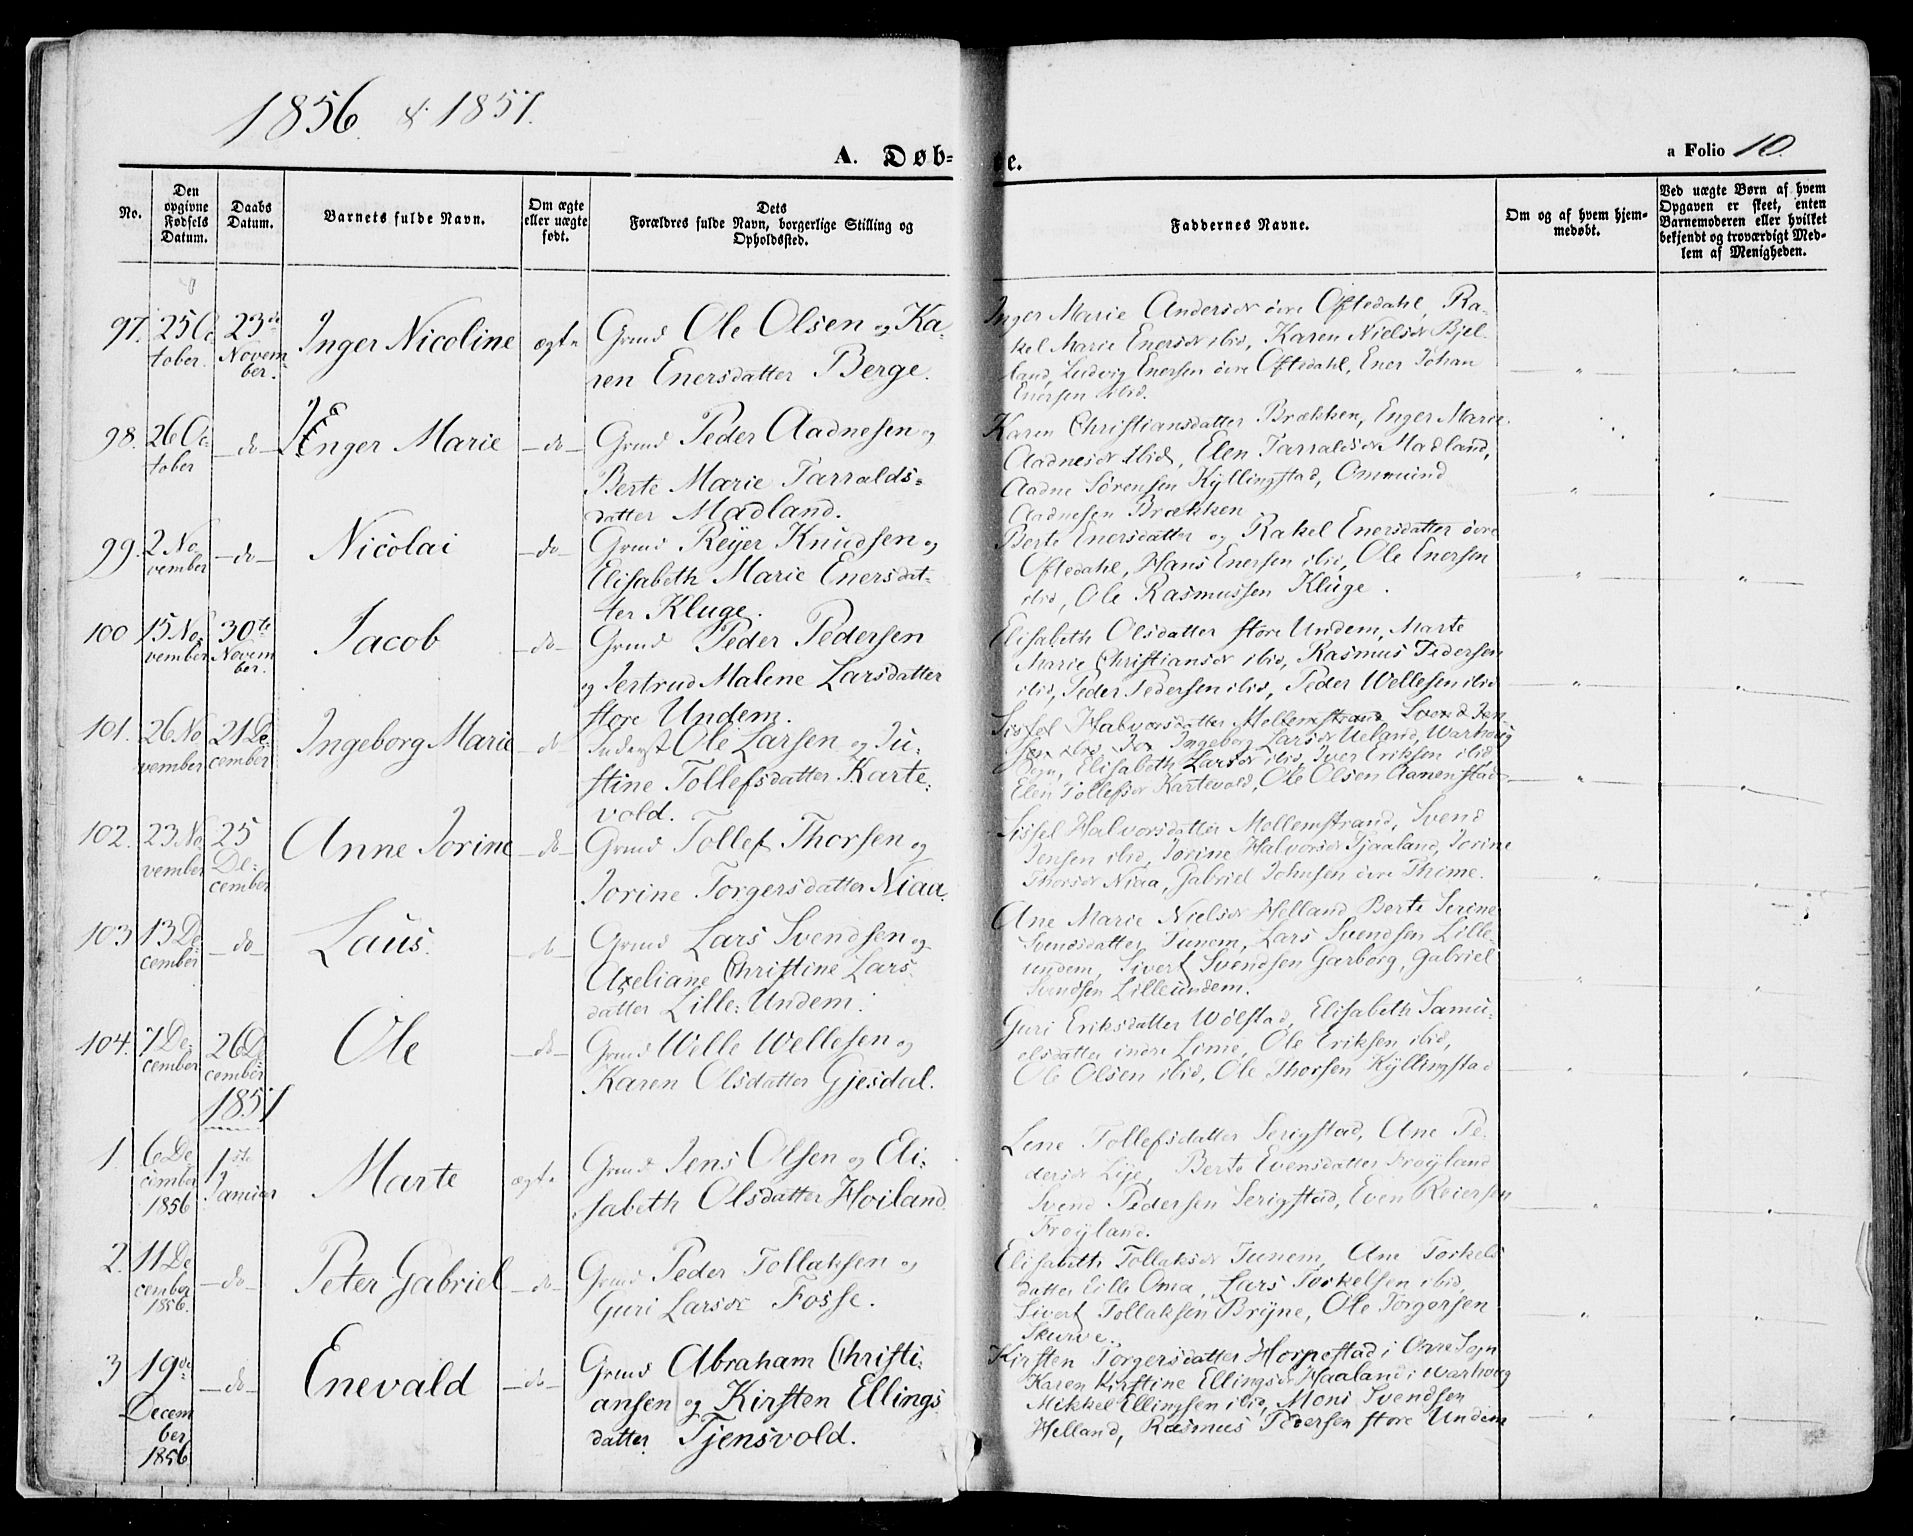 1856 & 1857.
A. Døb-
te.
a Folio 10.
No.
Den opgivne Fødsels Datum.
Daabs Datum.
Barnets fulde Navn.
Om ægte eller uægte født.
Dets Forældres fulde Navn, borgerlige Stilling og Opholdssted.
Faddernes Navne.
Om og af hvem hjem-
medøbt.
Ved uægte Børn af hvem
Opgaven er skeet, enten
Barnemoderen eller hvilket
bekjendt og troværdigt Med-
lem af Menigheden.
97. 25 Oc
tober.
23de
Novem
ber.
Inger Nicoline
ægte
Grmd Ole Olsen og Ka-
ren Enersdatter Berge.
Inger Marie Andersdr övre Oftedahl, Ra-
kel Marie Enersdr ibid, Karen Nielsdr Bjel-
land, Ludvig Enersen övre Oftedahl, Ener Johan
Enersen ibid.
98. 26 Oc
tober
-do-
Enger Marie
-do-
Grmd Peder Aadnesen og
Berte Marie Tarralds-
datter Madland.
Karen Christiansdatter Brækken, Enger Marie
Aadnesdr ibid, Elen Tarraldsdr Madland,
Aadne Sörensen Kyllingstad, Ommund
Aadnesen Brækken
99. 2 No
vember
-do-
Nicolai
-do-
Grmd Reyer Knudsen og
Elisabeth Marie Enersdat-
ter Kluge.
Berte Enersdatter og Rakel Enersdatter övre
Oftedahl, Hans Enersen ibid, Ole Enersen
ibid, Ole Rasmussen Kluge.
100 15 No-
vember
30te
Novem
ber.
Jacob
-do-
Grmd Peder Pedersen
og Jertrud Malene Larsdatter
store Undem.
Elisabeth Olsdatter store Undem, Marte
Marie Christiansdr ibid, Rasmus Pedersen
ibid, Peder Pedersen ibid, Peder Wellesen ibid
101. 26 No
vember
21 De
cember
Ingeborg Marie
-do
Inderst Ole Larsen og Ju-
stine Tollefsdatter Karte-
vold.
Sissel Halvorsdatter Mellemstrand Svend Jen-
sen ibid Ingeborg Larsdr Ueland, Warhoug
Sogn, Elisabeth Larsdr ibid, Iver Eriksen ibid,
Elen Tollefsdr Kartevold, Ole Olsen Aanenstad
102. 23 No
vember
25
De-
cember
Anne Jorine
-do-
Grmd Tollef Thorsen og
Jorine Torgersdatter Niaa.
Sissel Halvorsdatter Mellemstrand, Svend
Jensen ibid, Jorine Halvorsdr Tjaaland, Jorine
Thorsdr Niaa, Gabriel Johnsen övre Thime.
103 13 De-
cember
-do-
Laus.
-do-
Grmd Lars Svendsen og
Axeliane Christine Lars-
datter Lille-Undem.
Ane Marie Nielsdr Helland Berte Serine
Svendsdatter Tunem, Lars Svendsen Lille-
undem, Sivert Svendsen Garborg, Gabriel
Svendsen Lilleundem.
104. 7 De-
cember
26 De
cember
Ole
-do-
Grmd Welle Wellesen og
Karen Olsdatter Gjesdal.
Guri Eriksdatter Wolstad, Elisabeth Samu-
elsdatter indre Lime, Ole Eriksen ibid,
Ole Olsen ibid, Ole Thorsen Kyllingstad
1857
1. 6 De-
cember
1856
1ste
Januar
Marte
ægte
Grmd Jens Olsen og Eli-
sabeth Olsdatter Hoiland.
Lene Tollefsdatter Serigstad, Ane Pe-
dersdr Lye, Berte Evensdatter Fröyland
Svend Pedersen Serigstad, Even Reiersen
Fröyland.
2. 11 De
cember
1856.
-do-
Peter Gabriel
-do-
Grmd Peder Tollaksen og
Guri Larsdr Fosse.
Elisabeth Tollaksdr Tunem, Ane Torkels-
datter Lille Oma, Lars Torkelsen ibid,
Sivert Tollaksen Bryne, Ole Torgersen
Skurve.
3 19de
Decem
ber
1856
-do-
Enevald
-do-
Grmd Abraham Christi-
ansen og Kirsten Ellings-
datter Tjensvold.
Kirsten Torgersdatter Horpestad i Orre Sogn
Karen Kirstine Ellingsdr Haaland i Warhoug
Mikkel Ellingsen ibid, Moni Svendsen
Helland, Rasmus Pedersen store Undem